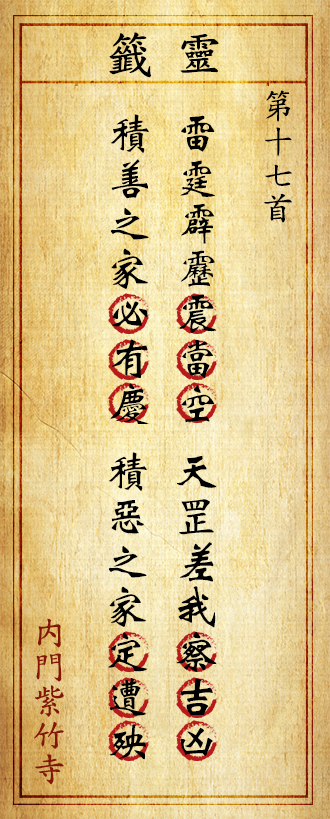 靈籤
第十七首
雷霆霹靂震當空
天罡差我察吉凶
積善之家必有慶
積惡之家定遭殃
內門紫竹寺